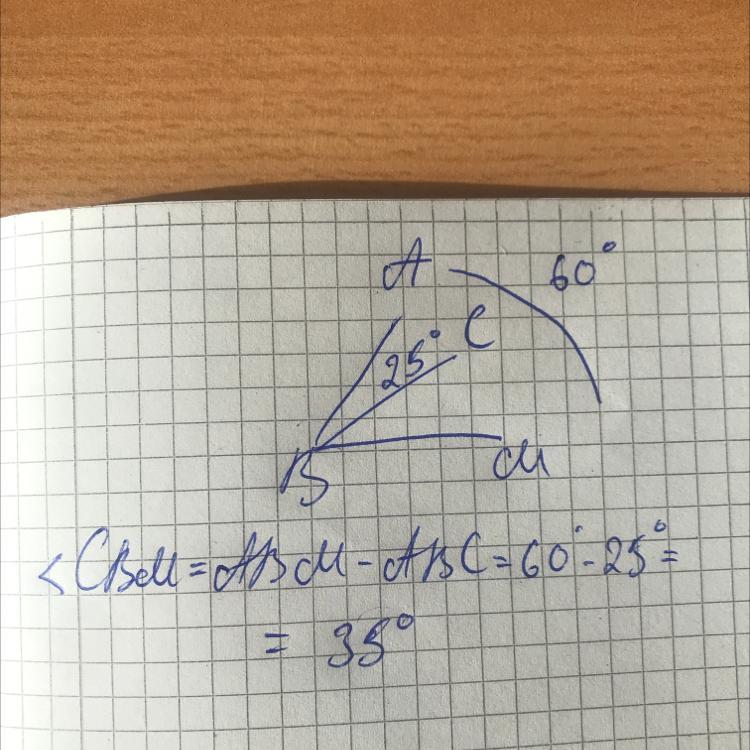 A
60°
C
25°
B
M
<CBM = ABM - ABC = 60° - 25° =
= 35°